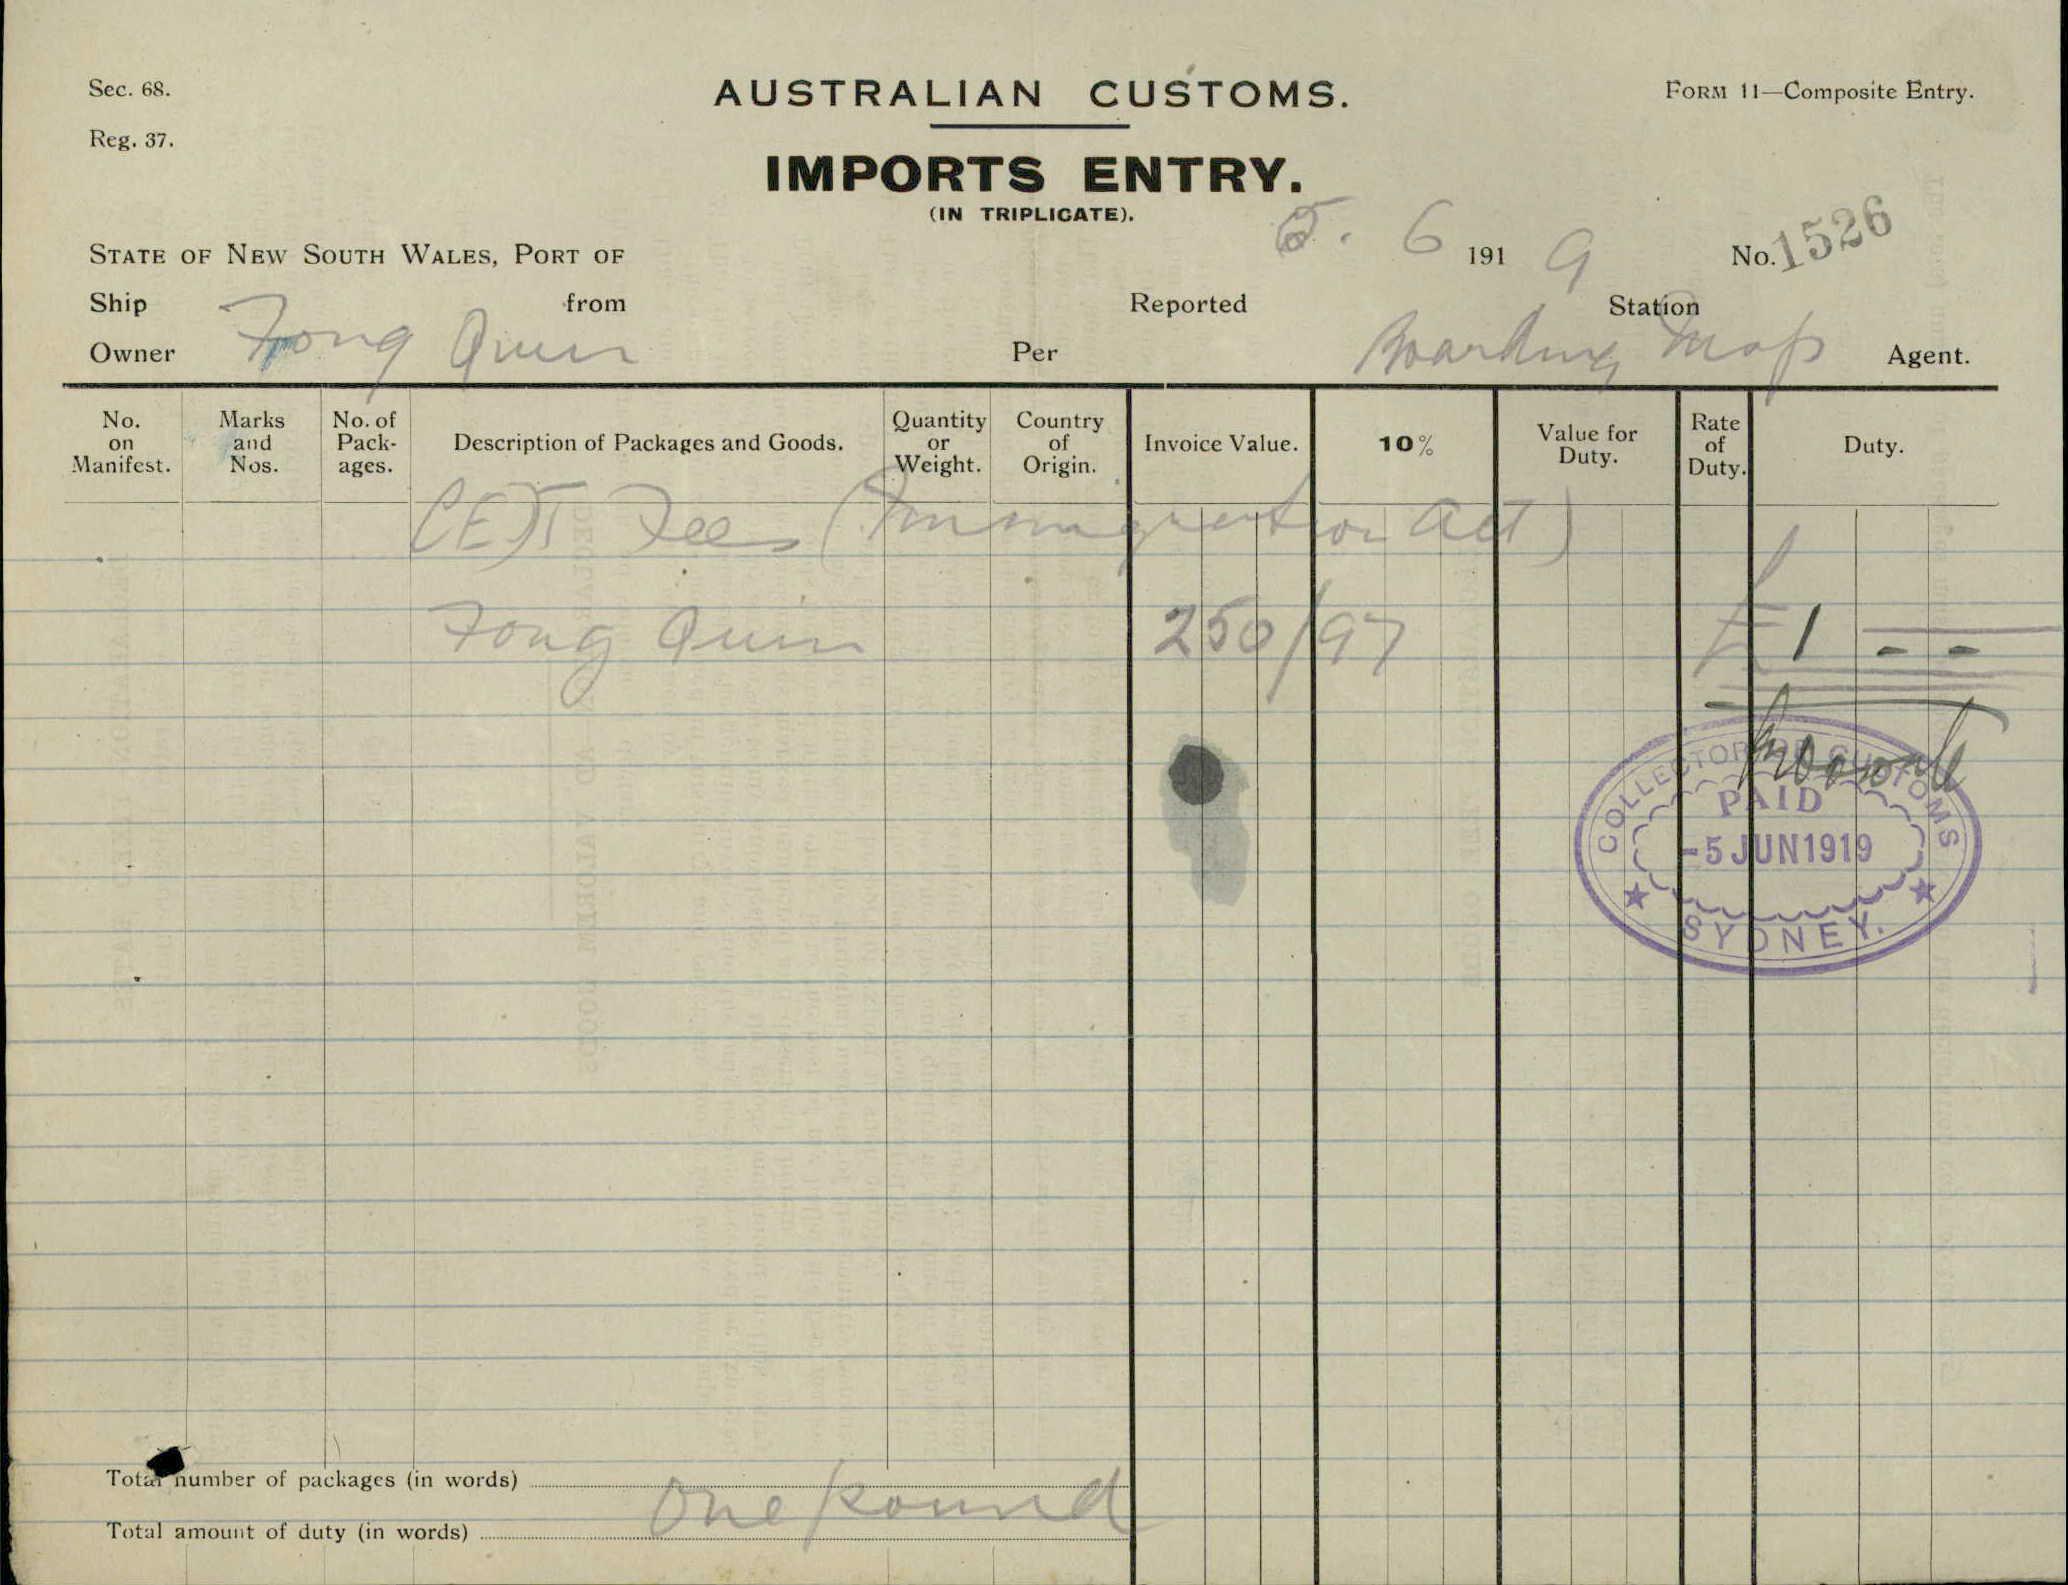 Sec. 68.
AUSTRALIAN CUSTOMS.
FORM 11—Composite Entry.
Reg. 37.
IMPORTS ENTRY.
(IN TRIPLICATE).
STATE OF NEW SOUTH WALES, PORT OF 5. 6 1919 No. 1526
Ship from Reported Station
Owner Fong Quin Per Boarding Insp Agent.
No. on Manifest.
Marks and Nos.
No. of Pack-ages.
Description of Packages and Goods.
Quantity or Weight.
Country of Origin.
Invoice Value.
10%
Value for Duty.
Rate of Duty.
Duty.
CEDT Fees (Immigration Act)
Fong Quin 250/97 £1 - -
COLLECTOR OF CUSTOMS
PAID
-5 JUN 1919
SYDNEY.
Total number of packages (in words)
One pound
Total amount of duty (in words)